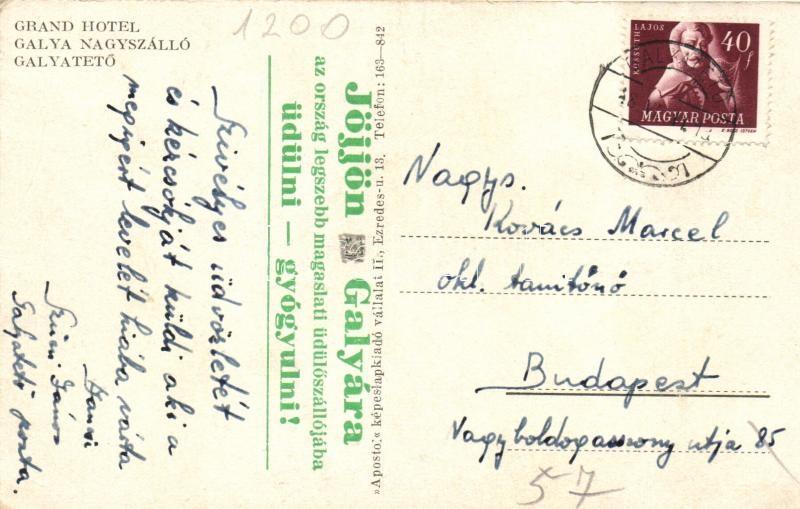 GRAND HOTEL
GALYA NAGYSZÁLLÓ
GALYATETŐ
1200
Szivélyes üdvözletét
és kézcsókját küldi aki a
megigért levelét hiába várta
Jancsi
Szücsi János
Galyatető posta.
Jöjjön Galyára
az ország legszebb magaslati üdülőszállójába
üdülni — gyógyulni!
»Apostol« képeslapkiadó vállalat II., Ezredes-u. 13. Telefon: 163—842
KOSSUTH LAJOS
40 f
MAGYAR POSTA
Nagys.
Kovács Marcel
okl. tanitónő
Budapest
Nagyboldogasszony utja 85
57